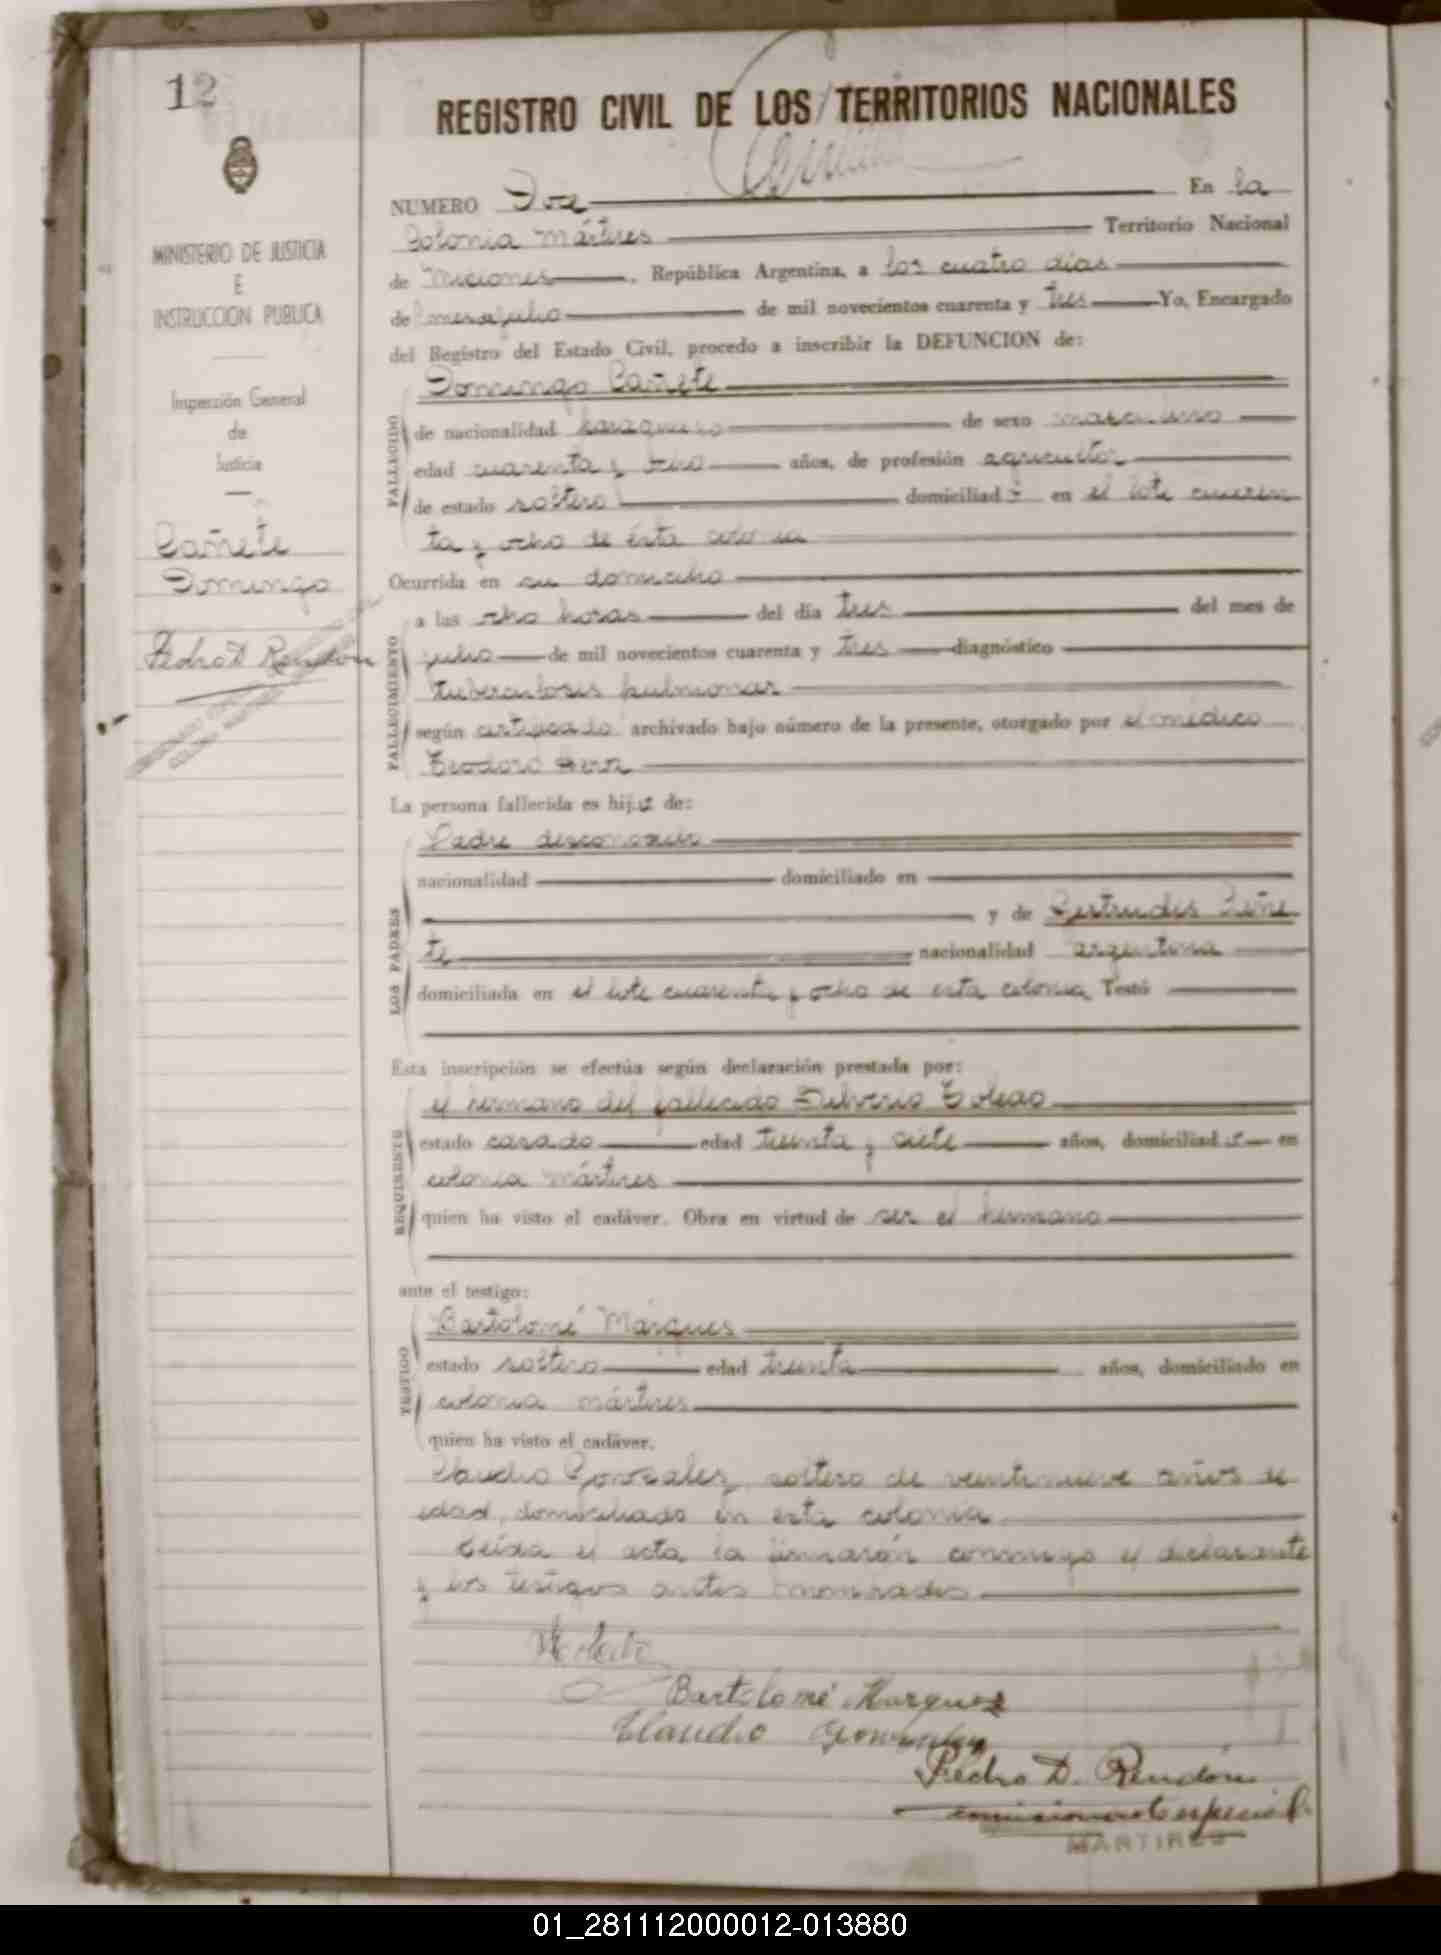 12
REGISTRO CIVIL DE LOS TERRITORIOS NACIONALES
MINISTERIO DE JUSTICIA
E
INSTRUCCION PUBLICA
Inspección General
de
Justicia
Cañete
Domingo
Pedro D Rendon
NUMERO Doce En la
Colonia Mártires Territorio Nacional
de Miciones, República Argentina, a los cuatro días
del mes de julio de mil novecientos cuarenta y tres Yo, Encargado
del Registro del Estado Civil, procedo a inscribir la DEFUNCION de:
FALLECIDO
Domingo Cañete
de nacionalidad paraguayo de sexo masculino
edad cuarenta y ocho años, de profesión agricultor
de estado soltero domiciliado en el lote cuaren
ta y ocho de ésta colonia
Ocurrida en su domicilio
FALLECIMIENTO
a las ocho horas del día tres del mes de
julio de mil novecientos cuarenta y tres diagnóstico
tuberculosis pulmonar
según certificado archivado bajo número de la presente, otorgado por el médico
Teodoro
La persona fallecida es hijo de:
LOS PADRES
Padre desconocido
nacionalidad domiciliado en
y de Gertrudes Cañe
te nacionalidad argentina
domiciliada en el lote cuarenta y ocho de esta colonia Testó
Esta inscripción se efectúa según declaración prestada por:
REQUIRENTE
el hermano del fallecido Silverio Toledo
estado casado edad treinta y siete años, domiciliado en
colonia mártires
quien ha visto el cadáver. Obra en virtud de ser el hermano
ante el testigo:
TESTIGO
Bartolomé Márques
estado soltero edad treinta años, domiciliado en
colonia mártires
quien ha visto el cadáver.
Claudio Gonzalez, soltero de veintinueve años de
edad, domiciliado en esta colonia
Leida el acta, la firmarón conmigo el declarante
y los testigos antes nombrados
Bartolomé Marquez
Claudio Gonzalez
Pedro D. Rendón
comisionado Especial
MARTIRES
01_281112000012-013880